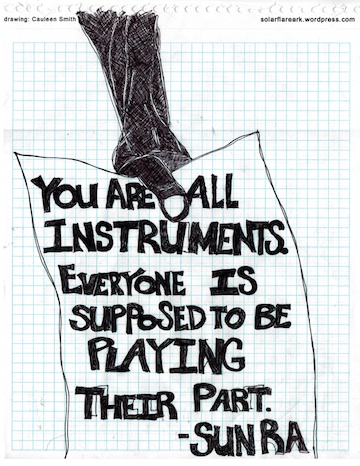 drawing: Cauleen Smith solarflareark.wordpress.com
YOU ARE ALL
INSTRUMENTS.
EVERYONE IS
SUPPOSED TO BE
PLAYING
THEIR PART.
-SUN RA